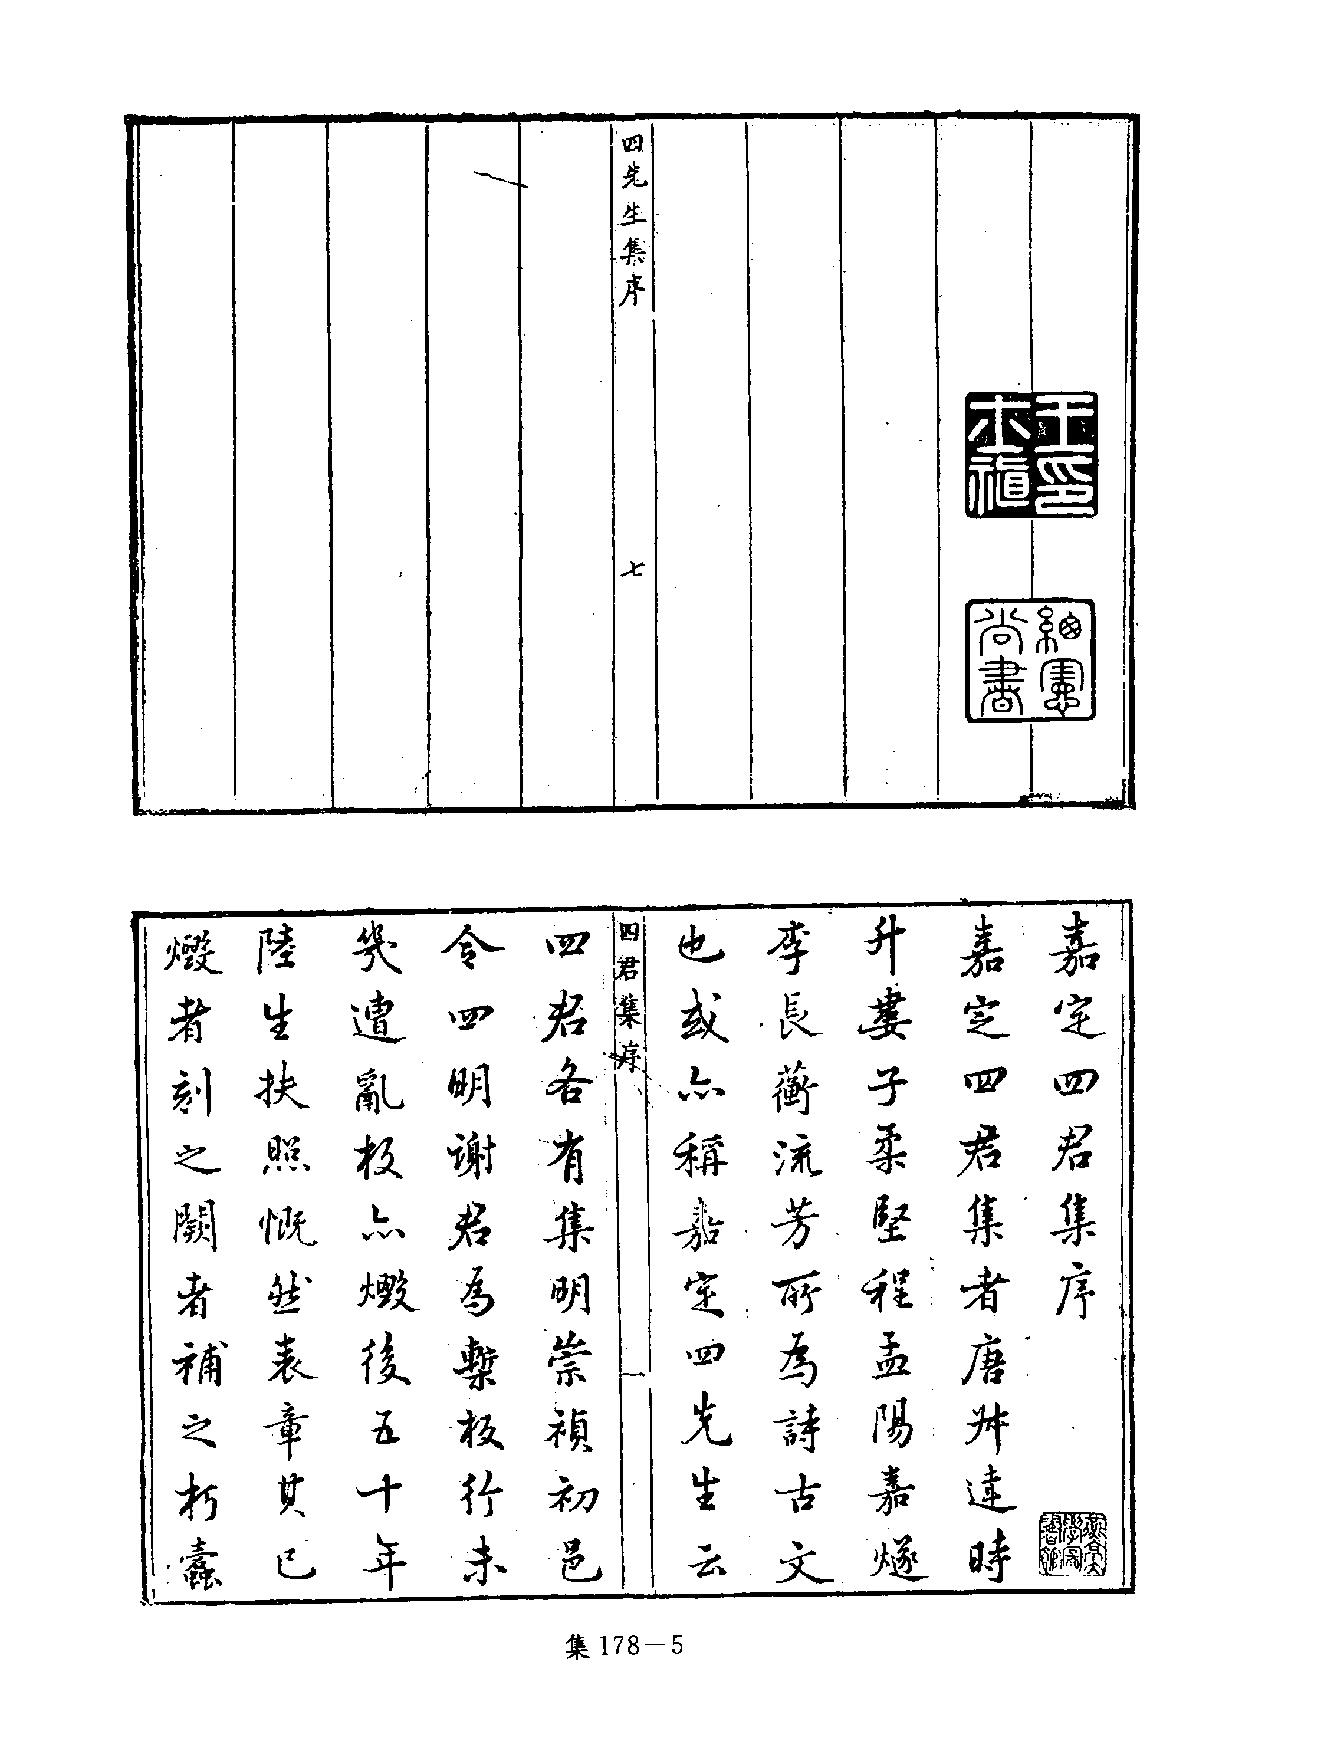 王印
士禛
經筵
尚書
四先生集序
七
嘉定四君集序
嘉定四君集者唐叔達時
升婁子柔堅程孟陽嘉燧
李長蘅流芳所為詩古文
也或亦稱嘉定四先生云
四君集序
一
四君各有集明崇禎初邑
令四明謝君為槧板行未
幾遭亂板亦燬後五十年
陸生扶照慨然表章其已
燬者刻之闕者補之朽蠹
集 178－5